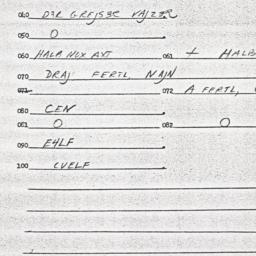 040 DER GREJSER KAJZER
050 O
060 HALB NOX AXT 061 + HALB
070 DRAJ FERTL NAJN
071 072 A FERTL,
080 CEN
081 O 082 O
090 E4LF
100 CVELF